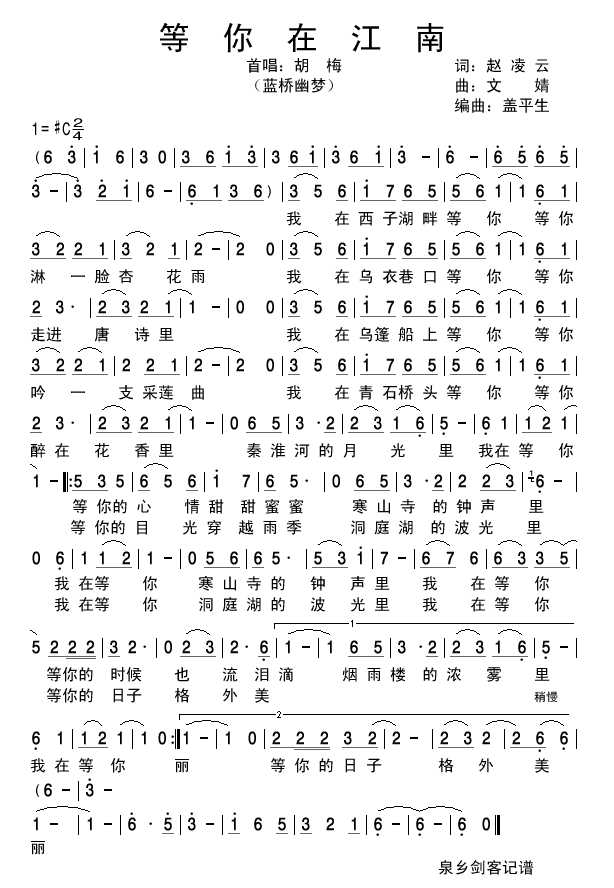 等你在江南
首唱：胡 梅 词：赵凌云
（蓝桥幽梦） 曲：文 婧
编曲：盖平生
1=#C 2/4
(6 3|1 6|3 0|3 6 1 3|3 6 1|3 6 1|3 -|6 -|6 5 6 5|
3 -|3 2 1|6 -|6 1 3 6)|3 5 6|1 7 6 5|5 6 1|1 6 1|
我 在 西子湖畔等 你 等你
3 2 2 1|3 2 1|2 - 2 0|3 5 6|1 7 6 5|5 6 1|1 6 1|
淋 一脸杏 花雨 我 在乌衣巷口等 你 等你
2 3·|2 3 2 1|1 -|0 0|3 5 6|1 7 6 5|5 6 1|1 6 1|
走进 唐 诗里 我 在乌篷船上等 你 等你
3 2 2 1|2 2 1|2 -|2 0|3 5 6|1 7 6 5|5 6 1|1 6 1|
吟 一 支采莲 曲 我 在青石桥头等 你 等你
2 3·|2 3 2 1|1 -|0 6 5|3·2|2 3 1 6|5 -|6 1|1 2 1|
醉在 花 香里 秦淮河的月 光 里 我在等 你
1 -‖:5 3 5|6 5 6|1 7|6 5·|0 6 5|3·2|2 2 3|1 6 -|
等你的心 情甜 甜蜜蜜 寒山寺 的钟声 里
等你的目 光穿 越雨季 洞庭湖 的波光 里
0 6|1 1 2|1 -|0 5 6|6 5·|5 3 1|7 -|6 7 6|6 3 3 5|
我 在等 你 寒山寺的 钟 声里 我 在等 你
我 在等 你 洞庭湖的 波 光里 我 在等 你
5 2 2 2|3 2·|0 2 3|2·6|1 -|1 6 5|3·2|2 3 1 6|5 -|
1
等你的 时候 也 流泪滴 烟雨楼 的浓 雾 里
等你的 日子 格 外美 稍慢
6 1|1 2 1|1 0:‖1 -|1 0|2 2 2 3 2|2 -|2 3 2|2 6 6|
2
我在等 你 丽 等你的日子 格 外 美
(6 -|3 -
1 - 1 -|6·5|3 -|1 6 5|3 2 1|6 - 6 -|6 0‖
丽
泉乡剑客记谱